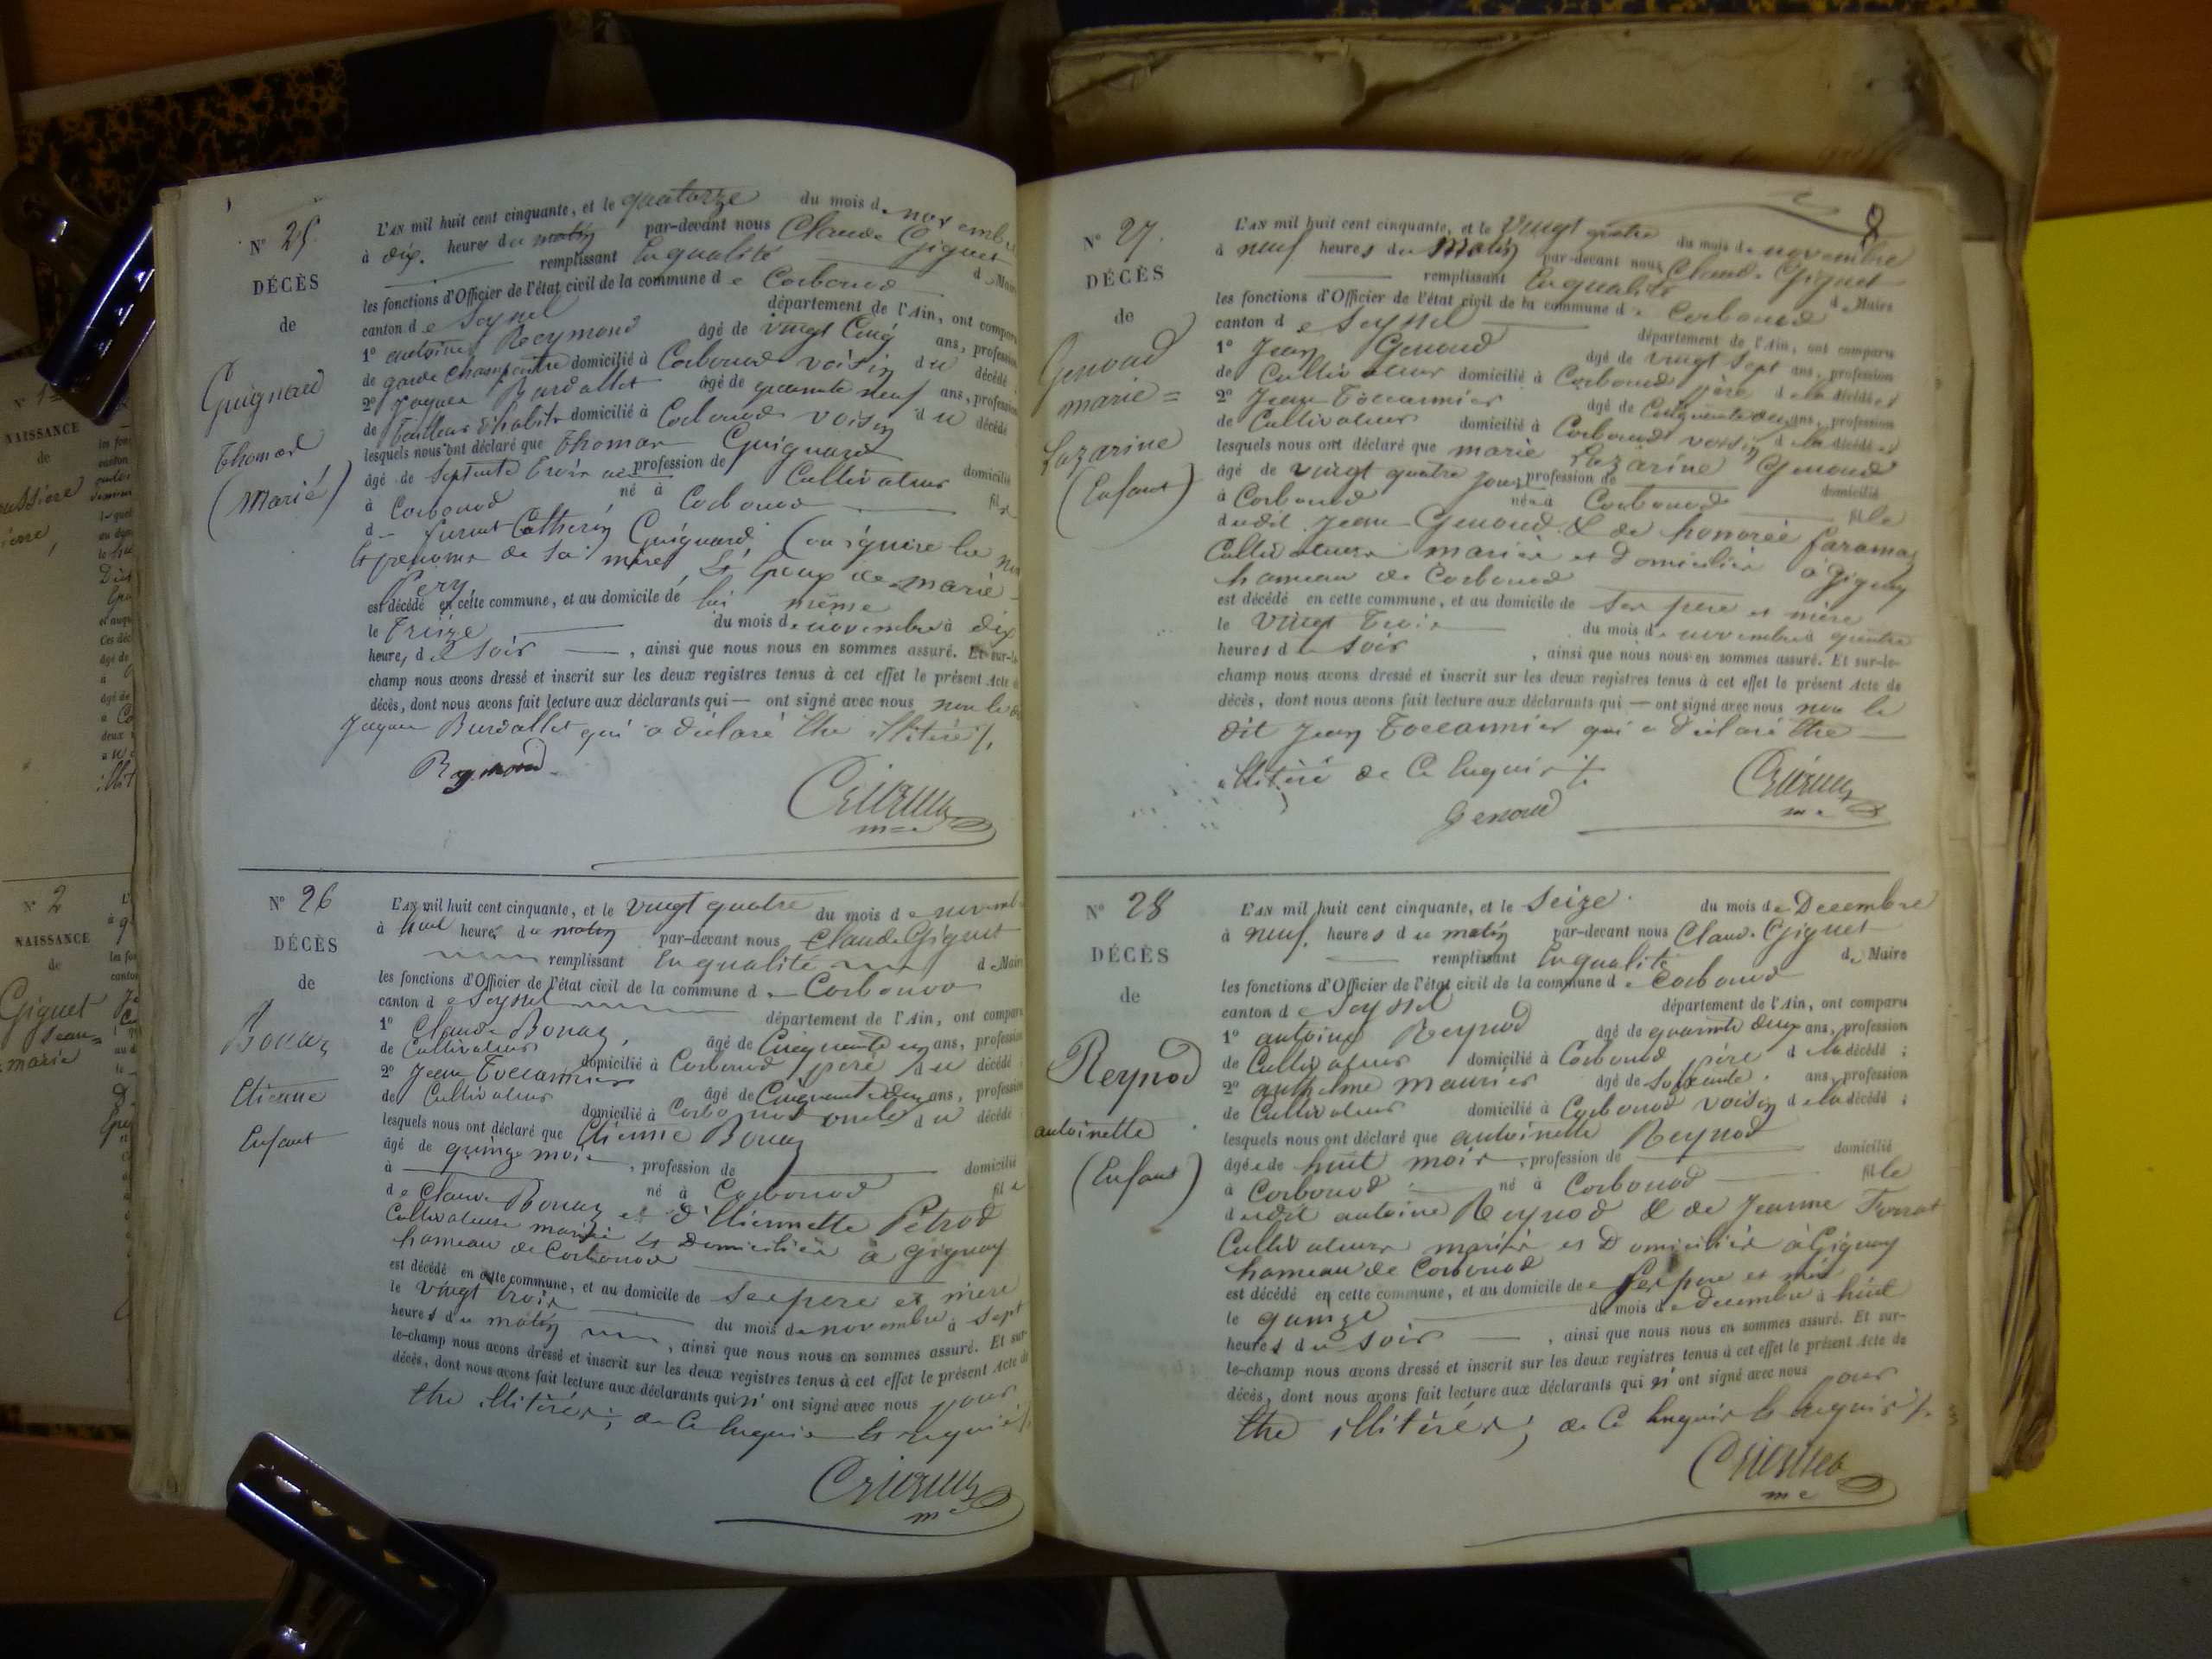 N° 25.
DÉCÈS
de
Guignard
Thomas
(marié)
L'AN mil huit cent cinquante, et le quatorze du mois de novembre
à dix heures du matin par-devant nous Claude Giguet
remplissant en qualité de Maire
les fonctions d'Officier de l'état civil de la commune de Corbonod
canton de Seyssel département de l'Ain, ont comparu
1° antoine Reymond âgé de vingt Cinq ans, profession
de garde champêtre domicilié à Corbonod voisin du décédé
2° Jaques Burdallet âgé de quarante neuf ans, profession
de Tailleur d'habits domicilié à Corbonod voisin du décédé
lesquels nous ont déclaré que Thomas Guignard
âgé de Septante trois ans profession de Cultivateur domicilié
à Corbonod né à Corbonod fils
d- furent Catherin Guignard (on ignore les nom
et prenoms de sa mère) Et époux de marie
Pery
est décédé en cette commune, et au domicile de lui même
le treize du mois de novembre à dix
heures du soir , ainsi que nous nous en sommes assuré. Et sur-le-
champ nous avons dressé et inscrit sur les deux registres tenus à cet effet le présent Acte de
décès, dont nous avons fait lecture aux déclarants qui — ont signé avec nous non le dit
Jaques Burdallet qui a déclaré être illitéré /.
Reymond
N° 26
DÉCÈS
de
Bouaz
Etienne
Enfant
L'AN mil huit cent cinquante, et le vingt quatre du mois de novembre
à huit heures du matin par-devant nous Claude Giguet
remplissant en qualité de Maire
les fonctions d'Officier de l'état civil de la commune de Corbonod
canton de Seyssel département de l'Ain, ont comparu
1° Claude Bouaz, âgé de Cinquante un ans, profession
de Cultivateur domicilié à Corbonod père du décédé
2° Jean Toccannier âgé de Cinquante deux ans, profession
de Cultivateur domicilié à Corbonod oncle du décédé
lesquels nous ont déclaré que Etienne Bouaz
âgé de quinze mois, profession de domicilié
à né à Corbonod fils
de Claude Bouaz et d'Etiennette Pétrod
Cultivateurs mariés et Domiciliés à Gignay
hameau de Corbonod
est décédé en cette commune, et au domicile de Ses pere et mère
le vingt trois du mois de novembre à sept
heures du matin , ainsi que nous nous en sommes assuré. Et sur-
le-champ nous avons dressé et inscrit sur les deux registres tenus à cet effet le présent Acte de
décès, dont nous avons fait lecture aux déclarants qui n'ont signé avec nous pour
être illitérés, de Ce Enquis et requis /.
me
N° 27.
DÉCÈS
de
Genoud
marie =
Lazarine
(Enfant)
L'AN mil huit cent cinquante, et le Vingt quatre du mois de novembre
à neuf heures du Matin par-devant nous Claude Giguet
remplissant En qualité de Maire
les fonctions d'Officier de l'état civil de la commune de Corbonod
canton de Seyssel département de l'Ain, ont comparu
1° Jean Genoud âgé de vingt sept ans, profession
de Cultivateur domicilié à Corbonod père de la décédée
2° Jean Toccannier âgé de Cinquante deux ans, profession
de Cultivateur domicilié à Corbonod voisin de la décédée
lesquels nous ont déclaré que marie Lazarine Genoud
âgé de vingt quatre jours profession de domicilié
à Corbonod née à Corbonod fille
dudit Jean Genoud & de honorée faramaz
Cultivateurs mariés et Domiciliés à Gignay
hameau de Corbonod
est décédé en cette commune, et au domicile de Ses pere et mère
le Vingt Trois du mois de novembre à quatre
heures du soir , ainsi que nous nous en sommes assuré. Et sur-le-
champ nous avons dressé et inscrit sur les deux registres tenus à cet effet le présent Acte de
décès, dont nous avons fait lecture aux déclarants qui — ont signé avec nous non le
dit Jean Toccannier qui a déclaré être
illitéré de Ce Enquis /.
Genoud
me
N° 28
DÉCÈS
de
Reynod
antoinette
(Enfant)
L'AN mil huit cent cinquante, et le Seize du mois de Decembre
à neuf heures du matin par-devant nous Claude Giguet
remplissant En qualité de Maire
les fonctions d'Officier de l'état civil de la commune de Corbonod
canton de Seyssel département de l'Ain, ont comparu
1° antoine Reynod âgé de quarante deux ans, profession
de Cultivateur domicilié à Corbonod père de la décédé ;
2° anthelme maurier âgé de Soixante ans, profession
de Cultivateur domicilié à Corbonod voisin de la décédé ;
lesquels nous ont déclaré que antoinette Reynod
âgée de huit mois, profession de domicilié
à Corbonod né à Corbonod fille
dudit antoine Reynod & de Jeanne
Cultivateurs mariés et Domiciliés à Gignay
hameau de Corbonod
est décédé en cette commune, et au domicile de Ses pere et mère
le quinze du mois de decembre à huit
heures du soir , ainsi que nous nous en sommes assuré. Et sur-
le-champ nous avons dressé et inscrit sur les deux registres tenus à cet effet le présent Acte de
décès, dont nous avons fait lecture aux déclarants qui n'ont signé avec nous pour
être illitérés, de Ce Enquis et requis /.
me